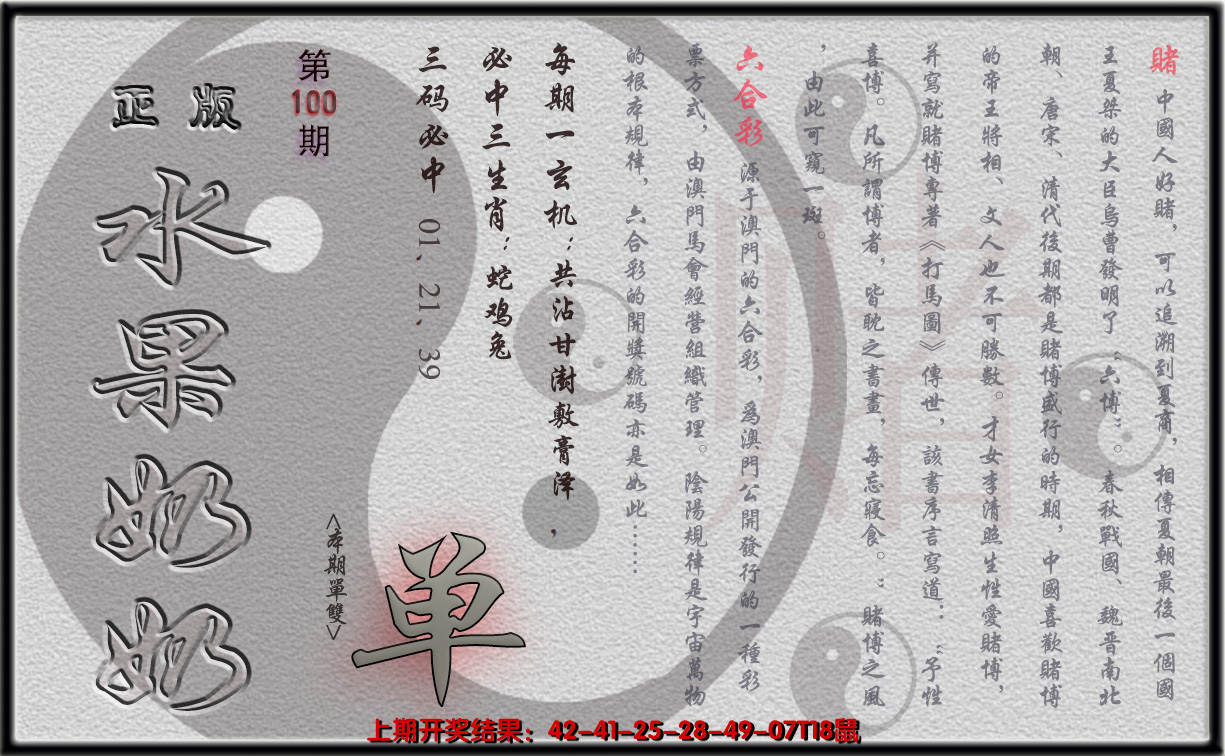 賭 中國人好賭，可以追溯到夏商，相傳夏朝最後一個國
王夏桀的大臣烏曹發明了“六博”。春秋戰國、魏晋南北
朝、唐宋、清代後期都是賭博盛行的時期，中國喜歡賭博
的帝王將相、文人也不可勝數。才女李清照生性愛賭博，
并寫就賭博專著《打馬圖》傳世，該書序言寫道：“予性
喜博。凡所謂博者，皆耽之書畫，每忘寢食。”賭博之風
，由此可窺一斑。
六合彩 源于澳門的六合彩，爲澳門公開發行的一種彩
票方式，由澳門馬會經營組織管理。陰陽規律是宇宙萬物
的根本規律，六合彩的開獎號碼亦是如此……
每期一玄机：共沾甘澍敷膏泽，
必中三生肖：蛇鸡兔
三码必中 01、21、39
第100期
正版
水果奶奶
<本期單雙>
单
上期开奖结果：42-41-25-28-49-07T18鼠